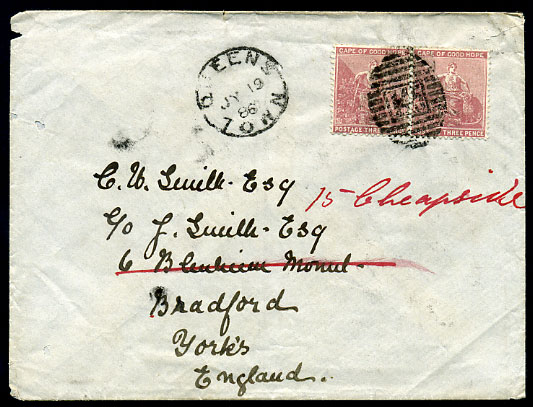 CAPE OF GOOD HOPE CAPE OF GOOD HOPE
POSTAGE THREE PENCE
QUEENSTOWN
JY 19
86
C. W. Smith. Esq
15 Cheapside
C/o J. Smith. Esq
6 Blenheim Mount
Bradford
York's
England.